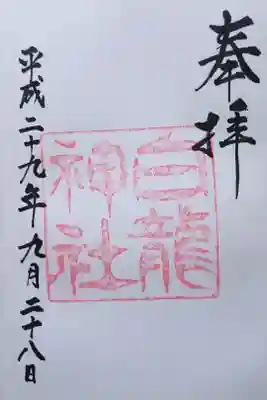 奉拝
白龍
神社
平成二十九年九月二十八日